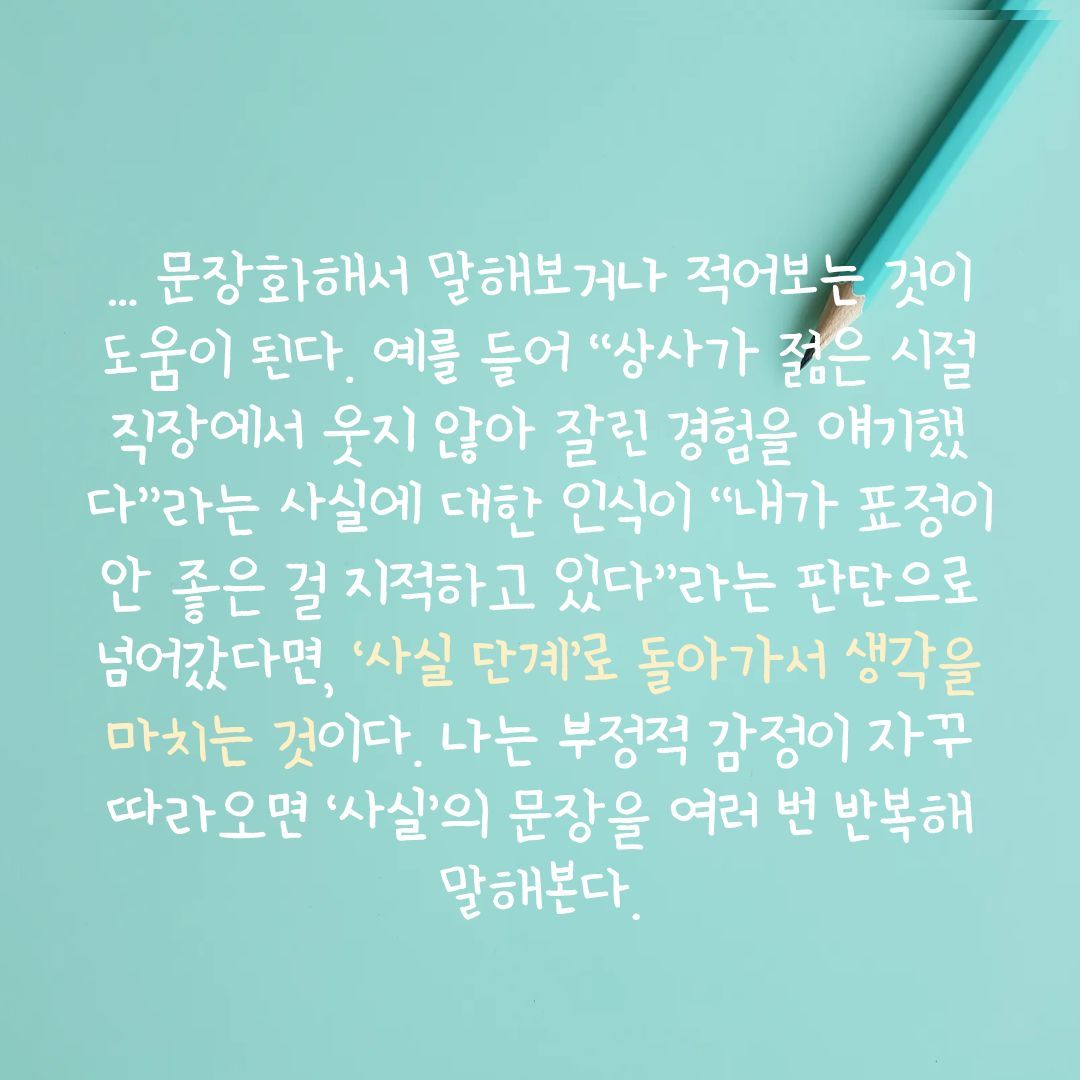 ... 문장화해서 말해보거나 적어보는 것이
도움이 된다. 예를 들어 “상사가 젊은 시절
직장에서 웃지 않아 잘린 경험을 얘기했
다”라는 사실에 대한 인식이 “내가 표정이
안 좋은 걸 지적하고 있다”라는 판단으로
넘어갔다면, ‘사실 단계’로 돌아가서 생각을
마치는 것이다. 나는 부정적 감정이 자꾸
따라오면 ‘사실’의 문장을 여러 번 반복해
말해본다.